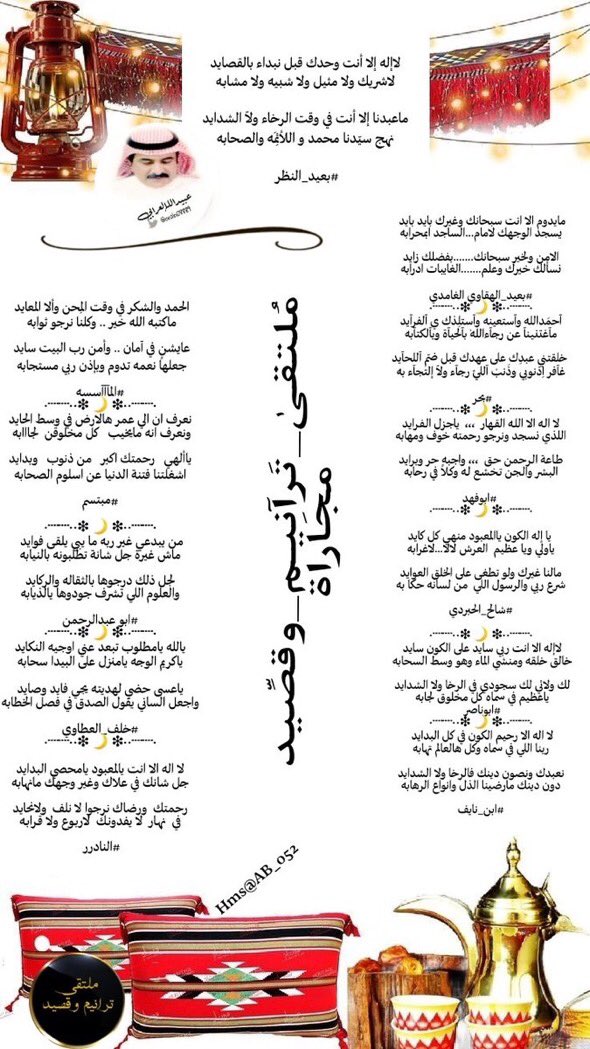 لاإله إلا أنت وحدك قبل نبداء بالقصايد
لاشريك ولا مثيل ولا شبيه ولا مشابه
ماعبدنا إلا أنت في وقت الرخاء ولآ الشدايد
نهج سيّدنا محمد و اللأئِمّه والصحابه
#بعيد_النظر
عبيدالله العراني
مايدوم الا انت سبحانك وغيرك بايد بايد
يسجد الوجهك لامام...الساجد امحرابه
الامن ولخير سبحانك.......بفضلك زايد
نسألك خيرك وعلم.......الغايبات ادرابه
#بعيد_الهقاوي الغامدي
أحمَدالله وأستعينه وأستلذك ي آلفرآيد
مآغتنينآ عن رجآءالله بآلحيآة وبآلكتآبه
خلقتني عبدك على عهدك قبل ضم آللحآيد
غآفر إذنوبي وذنب آللي رجآء ولآ إلتجآء به
#بحر
لا اله الا الله القهار ،،، ياجزل الفرايد
اللذي نسجد ونرجو رحمته خوف ومهابه
طاعة الرحمن حق ،،، واجبه حر وبرايد
البشر والجن تخشع له وكلاً في رحابه
#ابوفهد
يا إله الكون ياالمعبود منهي كل كايد
ياولي ويا عظيم العرش لالا...لاغرابه
مالنا غيرك ولو تطغى على الخلق العوايد
شرع ربي والرسول اللي من لسانه حكا به
#شالح_الحبردي
لاإله الا انت ربي سايد على الكون سايد
خالق خلقه ومنشي الماء وهو وسط السحابه
لك ولاني لك سجودي في الرخا ولا الشدايد
ياعظيم في سماه كل مخلوق لجابه
#ابوناصر
لا اله الا رحيم الكون في كل البدايد
ربنا اللي في سماه وكل هالعالم تهابه
نعبدك ونصون دينك فالرخا ولا الشدايد
دون دينك مارضينا الذل وانواع الرهابه
#ابن_نايف
مُلتقىٰ_تَرآنيم_وقصٍّيد
مجاراة
الحمد والشكر في وقت المحن وألا المعايد
ماكتبه الله خير .. وكلنا نرجو ثوابه
عايشن في آمان .. وأمن رب البيت سايد
جعلها نعمه تدوم وبإذن ربي مستجابه
#المآآآسسه
نعرف ان الي عمر هالارض في وسط الحايد
ونعرف انه مايخيب كل مخلوقن لجاابه
ياألهي رحمتك اكبر من ذنوب وبدايد
اشغلتنا فتنة الدنيا عن اسلوم الصحابه
#مبتسم
من يبدعي غير ربه ما يبي يلقى فوايد
ماش غيرة جل شانة تطلبونه بالنيابه
لجل ذلك درجوها بالثقاله والركايد
والعلوم اللي تشرف جودوها بالذيابه
#ابو عبدالرحمن
يالله يامطلوب تبعد عني اوجيه النكايد
ياكريم الوجه يامنزل على البيدا سحابه
ياعسى حضي لهديته يجي فايد وصايد
واجعل الساني يقول الصدق في فصل الخطابه
#خلف_العطاوي
لا اله الا انت يالمعبود يامحصي البدايد
جل شانك في علاك وغير وجهك مانهابه
رحمتك ورضاك نرجوا لا نلف ولانحايد
في نهار لا يفدونك لاربوع ولا قرابه
#النادرر
Hms@AB_052
ملتقى
ترانيم وقصيد